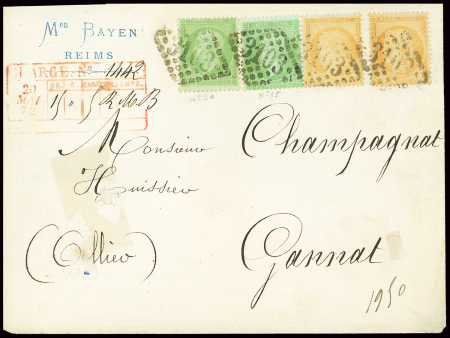 Mon BAYEN
REIMS
CHARGÉ No 1442
3103
No 20
No 35
Monsieur Champagnat
Huissier
(Allier) Gannat
1950